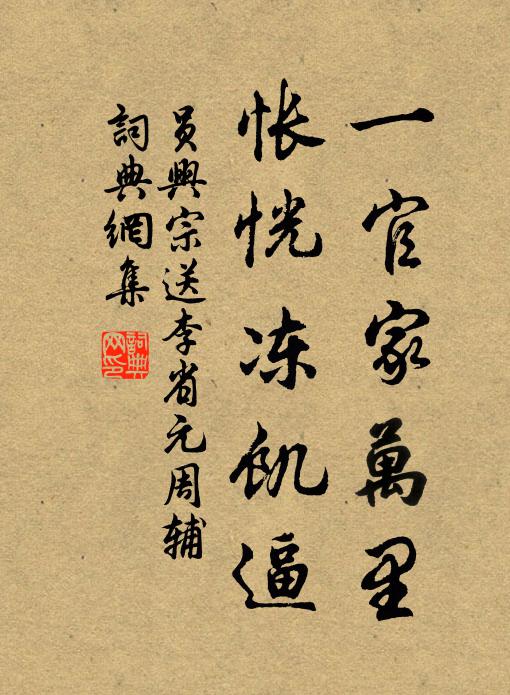 一官家萬里
怅恍冻飢逼
员興宗送李省元周辅
詞典網集
詞典
网印